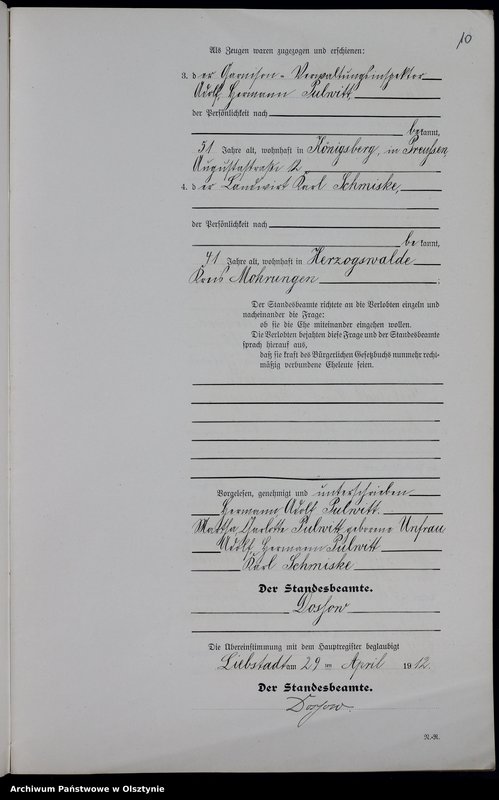 10
Als Zeugen waren zugezogen und erschienen:
3. der Garnison-Verwaltungsinspektor
Adolf Hermann Pulwitt
der Persönlichkeit nach
bekannt,
51 Jahre alt, wohnhaft in Königsberg, in Preußen,
Augustastraße 2
4. der Landwirt Karl Schmiske,
der Persönlichkeit nach
bekannt,
41 Jahre alt, wohnhaft in Herzogswalde
Kreis Mohrungen ;
Der Standesbeamte richtete an die Verlobten einzeln und
nacheinander die Frage:
ob sie die Ehe miteinander eingehen wollen.
Die Verlobten bejahten diese Frage und der Standesbeamte
sprach hierauf aus,
daß sie kraft des Bürgerlichen Gesetzbuchs nunmehr recht-
mäßig verbundene Eheleute seien.
Vorgelesen, genehmigt und unterschrieben
Hermann Adolf Pulwitt.
Martha Charlotte Pulwitt geborene Unfrau
Adolf Hermann Pulwitt
Karl Schmiske
Der Standesbeamte.
Dossow
Die Übereinstimmung mit dem Hauptregister beglaubigt
Liebstadt am 29 ten April 1912.
Der Standesbeamte.
Dossow.
N.-R.
Archiwum Państwowe w Olsztynie